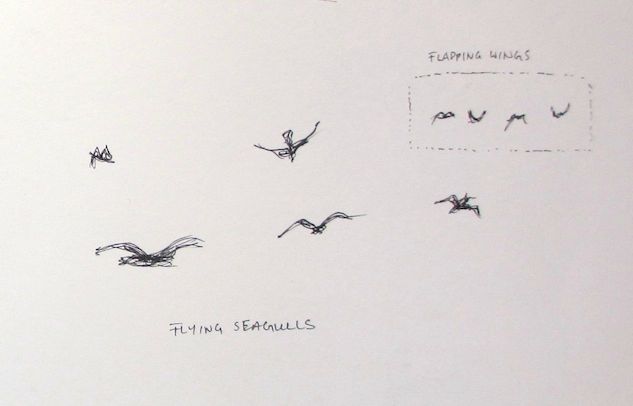 FLAPPING WINGS
FLYING SEAGULLS